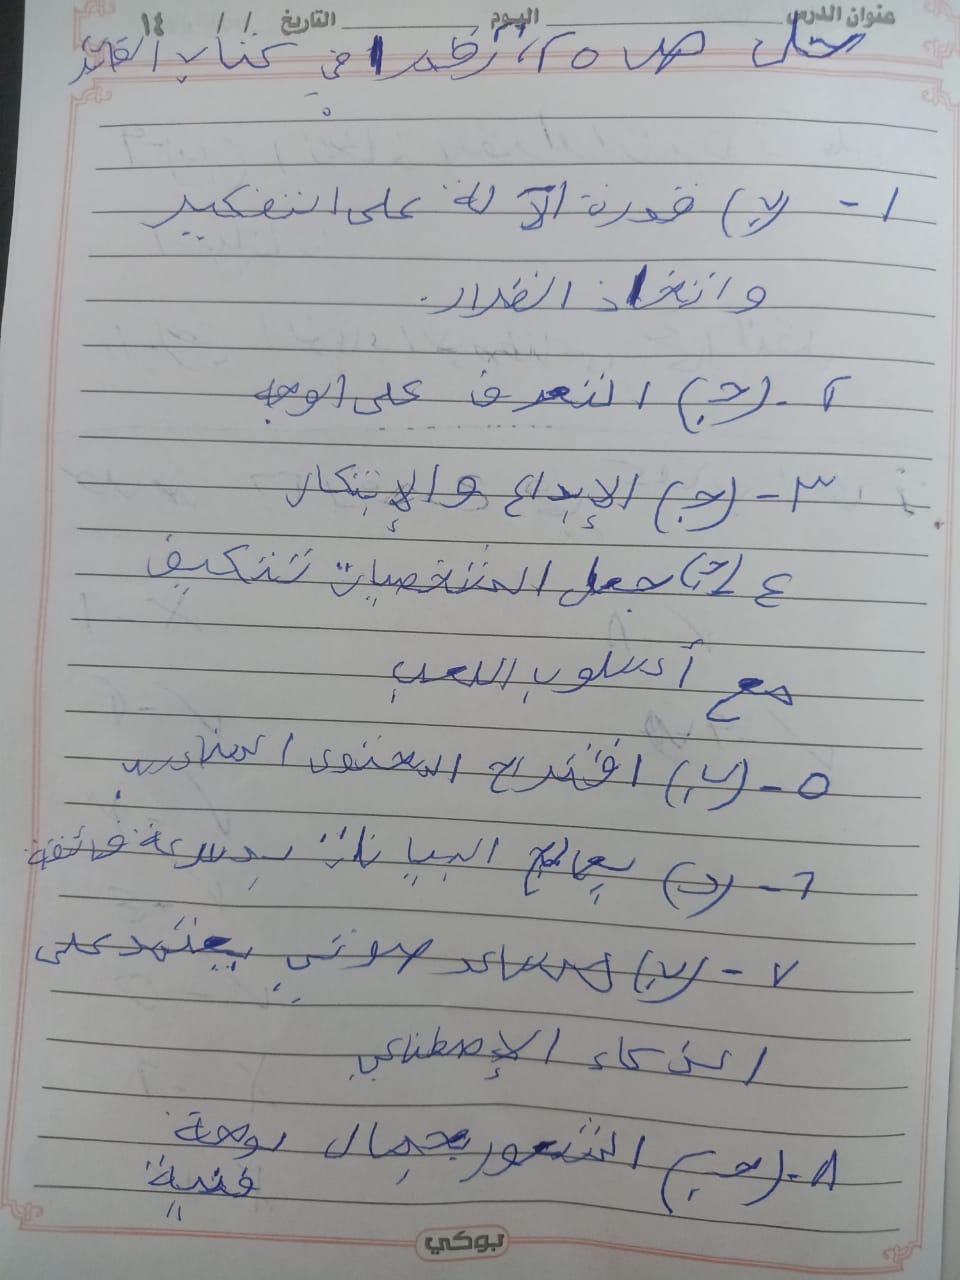 عنوان الدرس اليوم التاريخ / / ١٤
حل ص ٢٥، رقم ١ في كتاب القائد
١- (ب) قدرة الآلة على التفكير
واتخاذ القرار.
٢- (ج) التعرف على الوجه
٣- (ج) الإبداع والإبتكار
٤ (ج) جعل الشخصيات تتكيف
مع أسلوب اللعب
٥- (ب) اقتراح المحتوى المناسب
٦- (د) يعالج البيانات بسرعة فائقة
٧- (ب) مساعد صوتي يعتمد على
الذكاء الإصطناعي
٨- (ج) الشعور بجمال لوحة
فنية
بوكي